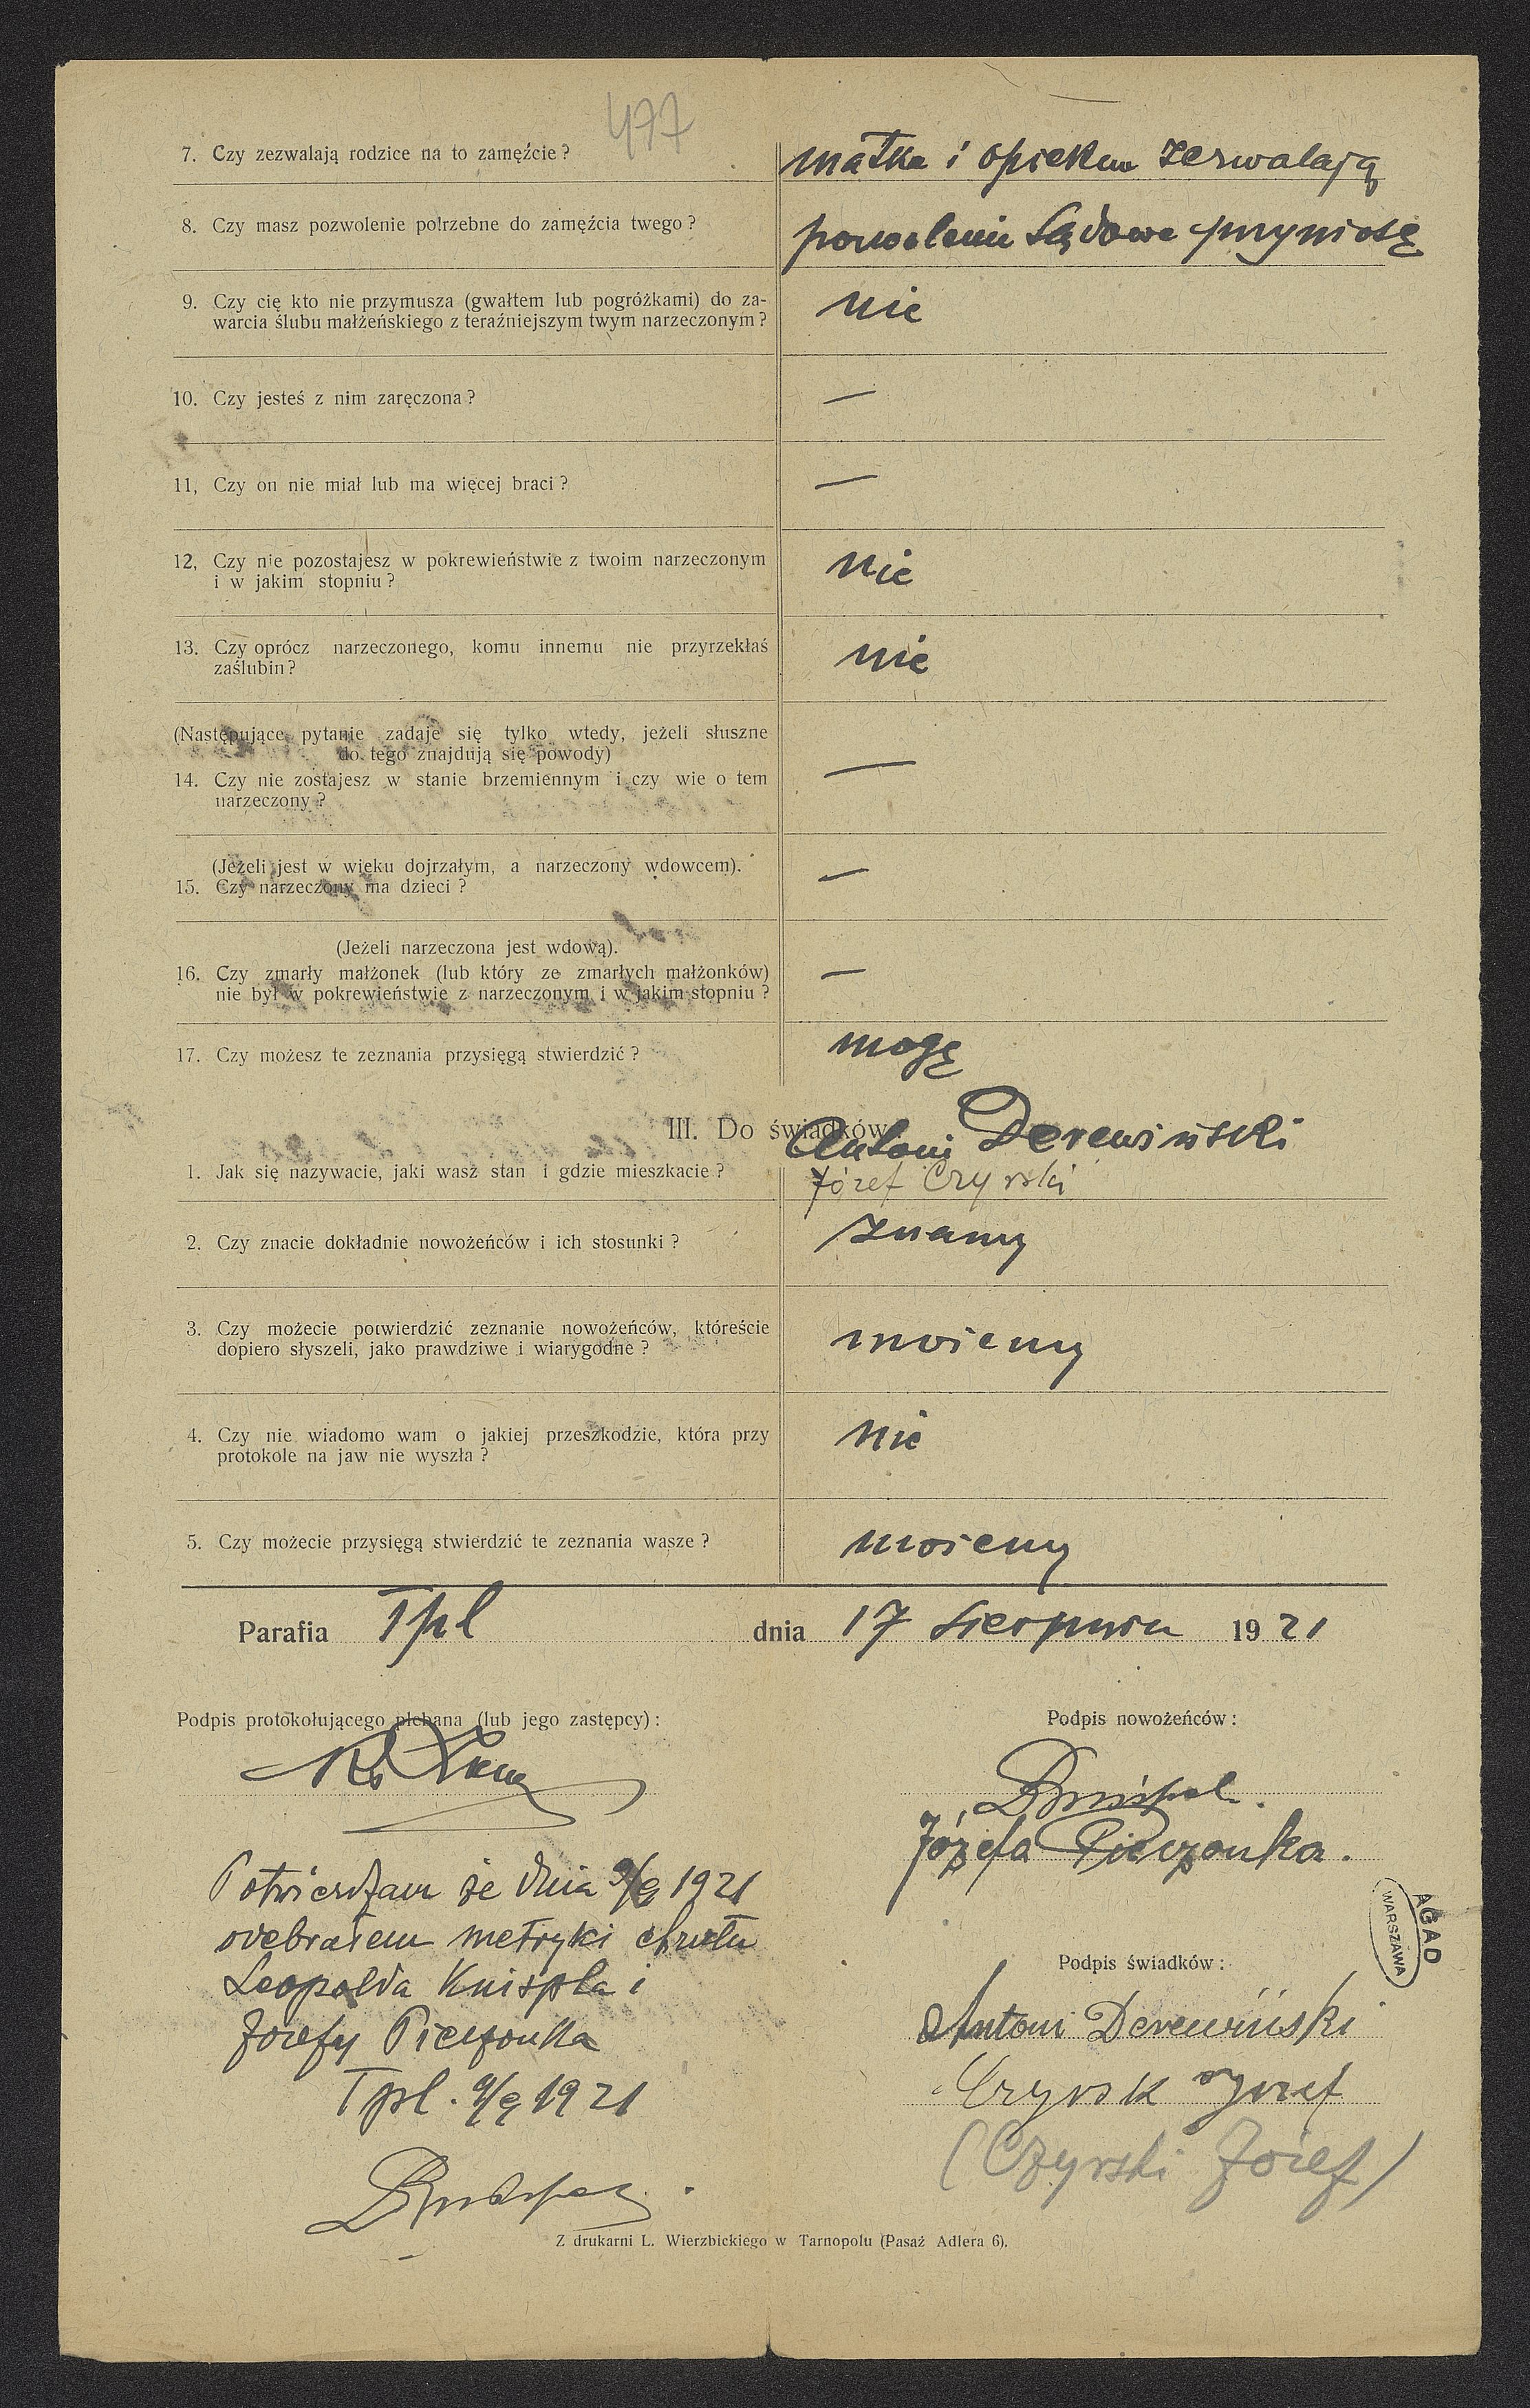 477
7. Czy zezwalają rodzice na to zamęźcie ? matka i opiekun zezwalają
8. Czy masz pozwolenie potrzebne do zamęźcia twego ? pozwolenie Sądowe przyniosę
9. Czy cię kto nie przymusza (gwałtem lub pogróżkami) do za-
warcia ślubu małżeńskiego z teraźniejszym twym narzeczonym ? nie
10. Czy jesteś z nim zaręczona ? —
11, Czy on nie miał lub ma więcej braci ? —
12, Czy nie pozostajesz w pokrewieństwie z twoim narzeczonym
i w jakim stopniu ? nie
13. Czy oprócz narzeczonego, komu innemu nie przyrzekłaś
zaślubin ? nie
(Następujące pytanie zadaje się tylko wtedy, jeżeli słuszne
do tego znajdują się powody)
14. Czy nie zostajesz w stanie brzemiennym i czy wie o tem
narzeczony ? —
(Jeżeli jest w wieku dojrzałym, a narzeczony wdowcem).
15. Czy narzeczony ma dzieci ? —
(Jeżeli narzeczona jest wdową).
16. Czy zmarły małżonek (lub który ze zmarłych małżonków)
nie był w pokrewieństwie z narzeczonym i w jakim stopniu ? —
17. Czy możesz te zeznania przysięgą stwierdzić ? mogę
III. Do świadków
Antoni Derewiński
1. Jak się nazywacie, jaki wasz stan i gdzie mieszkacie ? Józef Czyrski
2. Czy znacie dokładnie nowożeńców i ich stosunki ? znamy
3. Czy możecie potwierdzić zeznanie nowożeńców, któreście
dopiero słyszeli, jako prawdziwe i wiarygodne ? możemy
4. Czy nie wiadomo wam o jakiej przeszkodzie, która przy
protokole na jaw nie wyszła ? nie
5. Czy możecie przysięgą stwierdzić te zeznania wasze ? możemy
Parafia Tpl dnia 17 sierpnia 1921
Podpis protokołującego plebana (lub jego zastępcy) :
Podpis nowożeńców :
Józefa Pieczonka.
Potwierdzam że dnia 9/9 1921
odebrałem metryki chrztu
Leopolda Knispla i
Józefy Pieczonka
Tpl. 9/9 1921
AGAD
WARSZAWA
Podpis świadków :
Antoni Derewiński
Czyrsk Józef
(Czyrski Józef)
Z drukarni L. Wierzbickiego w Tarnopolu (Pasaż Adlera 6).